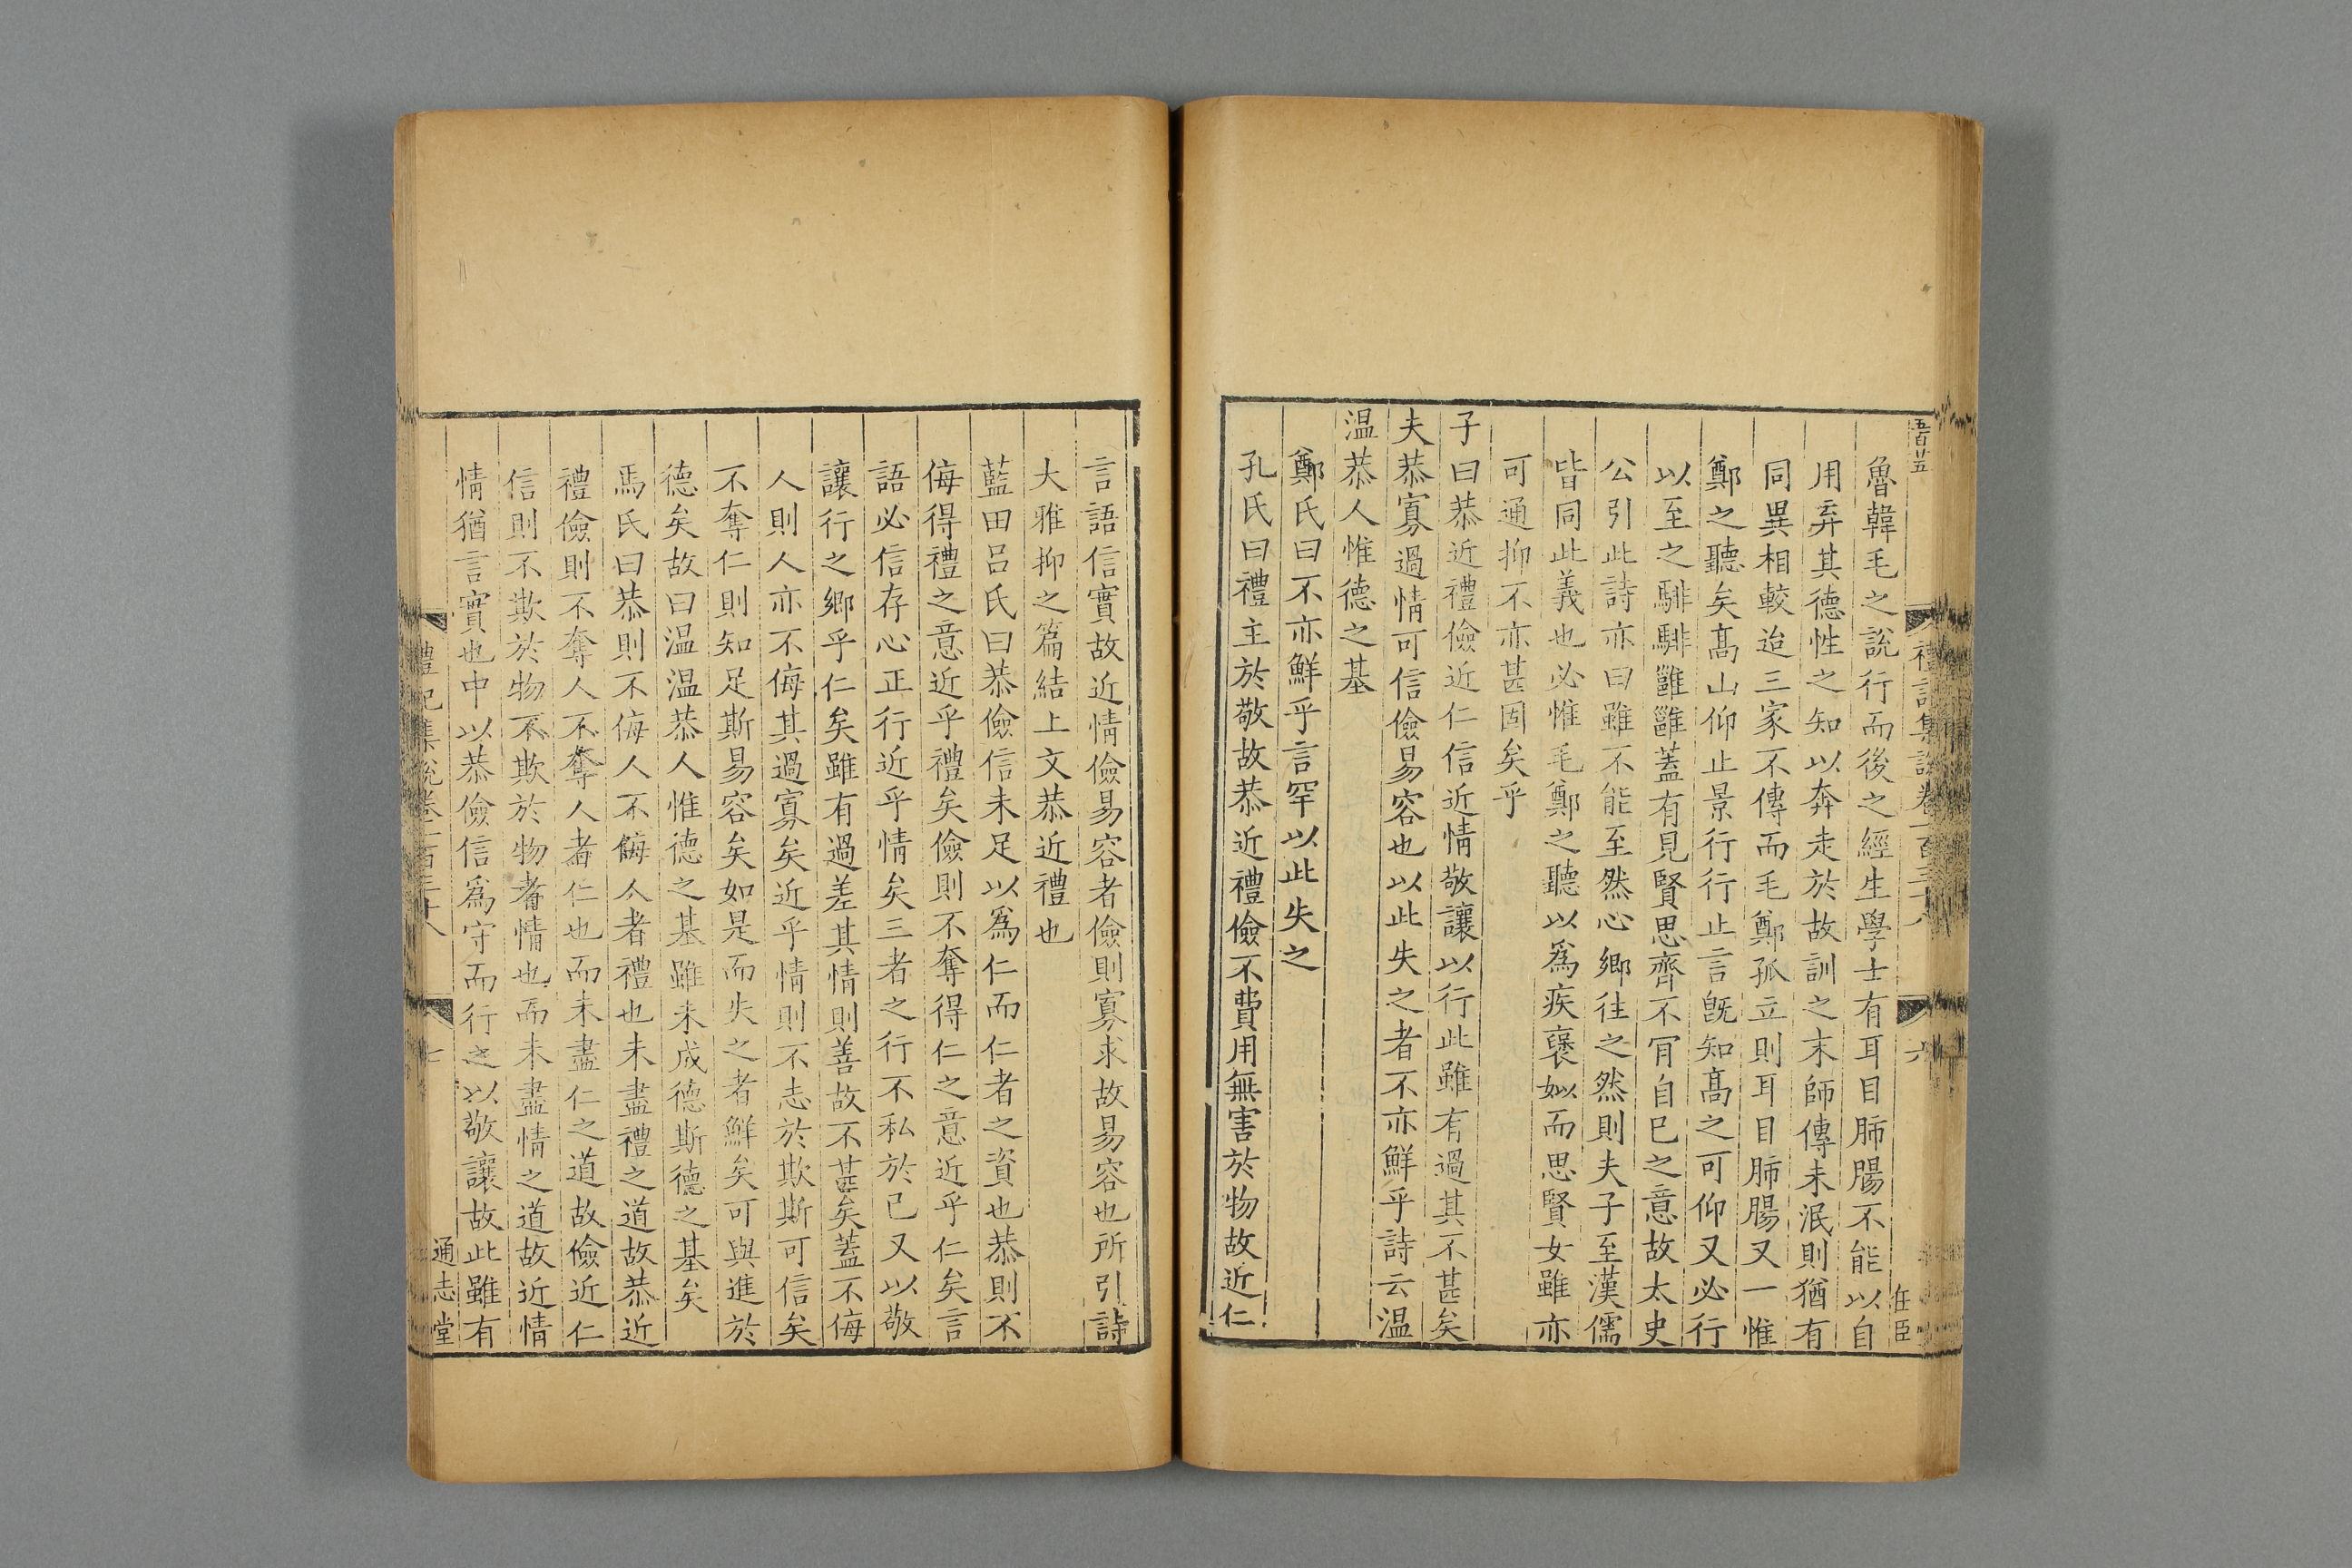 五百廿五
禮記集說卷一百三十八
六
任臣
魯韓毛之說行而後之經生學士有耳目肺腸不能以自
用弃其德性之知以奔走於故訓之末師傳未泯則猶有
同異相較迨三家不傳而毛鄭孤立則耳目肺腸又一惟
鄭之聽矣髙山仰止景行行止言旣知髙之可仰又必行
以至之騑騑雖雖蓋有見賢思齊不肎自已之意故太史
公引此詩亦曰雖不能至然心鄉往之然則夫子至漢儒
皆同此義也必惟毛鄭之聽以爲疾褒姒而思賢女雖亦
可通抑不亦甚固矣乎
子曰恭近禮儉近仁信近情敬讓以行此雖有過其不甚矣
夫恭寡過情可信儉易容也以此失之者不亦鮮乎詩云温
温恭人惟德之基
鄭氏曰不亦鮮乎言罕以此失之
孔氏曰禮主於敬故恭近禮儉不費用無害於物故近仁
言語信實故近情儉易容者儉則寡求故易容也所引詩
大雅抑之篇結上文恭近禮也
藍田呂氏曰恭儉信未足以爲仁而仁者之資也恭則不
侮得禮之意近乎禮矣儉則不奪得仁之意近乎仁矣言
語必信存心正行近乎情矣三者之行不私於己又以敬
讓行之鄉乎仁矣雖有過差其情則善故不甚矣蓋不侮
人則人亦不侮其過寡矣近乎情則不志於欺斯可信矣
不奪仁則知足斯易容矣如是而失之者鮮矣可與進於
德矣故曰温温恭人惟德之基雖未成德斯德之基矣
馬氏曰恭則不侮人不侮人者禮也未盡禮之道故恭近
禮儉則不奪人不奪人者仁也而未盡仁之道故儉近仁
信則不欺於物不欺於物者情也而未盡情之道故近情
情猶言實也中以恭儉信爲守而行之以敬讓故此雖有
禮記集說卷一百三十八
七
通志堂